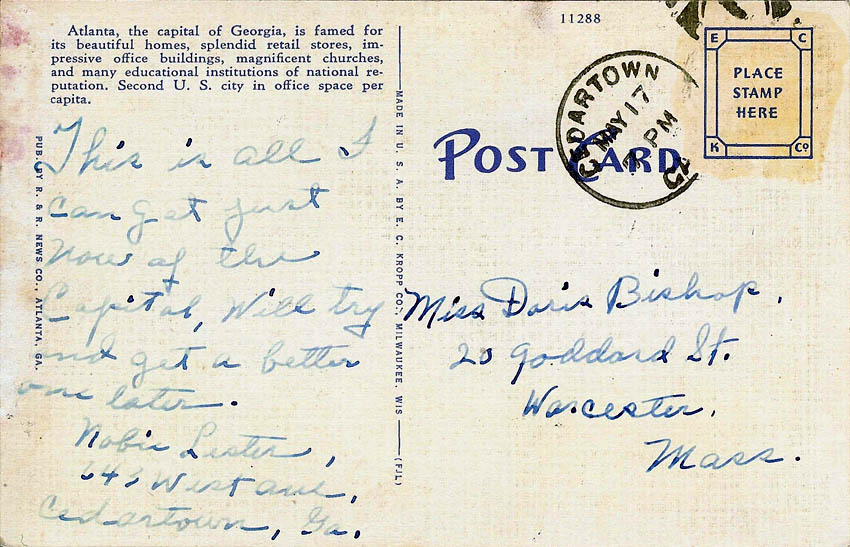 Atlanta, the capital of Georgia, is famed for
its beautiful homes, splendid retail stores, im-
pressive office buildings, magnificent churches,
and many educational institutions of national re-
putation. Second U. S. city in office space per
capita.
This is all I
can get just
now of the
Capital, Will try
and get a better
one later.
Lester,
643 West ave,
Cedartown, Ga.
PUB. BY R. & R. NEWS CO., ATLANTA, GA.
MADE IN U. S. A. BY E. C. KROPP CO., MILWAUKEE, WIS
(FJL)
11288
POST CARD
CEDARTOWN
MAY 17
7 PM
GA
E C
PLACE
STAMP
HERE
K Co
Miss Doris Bishop,
20 Goddard St.
Worcester,
Mass.